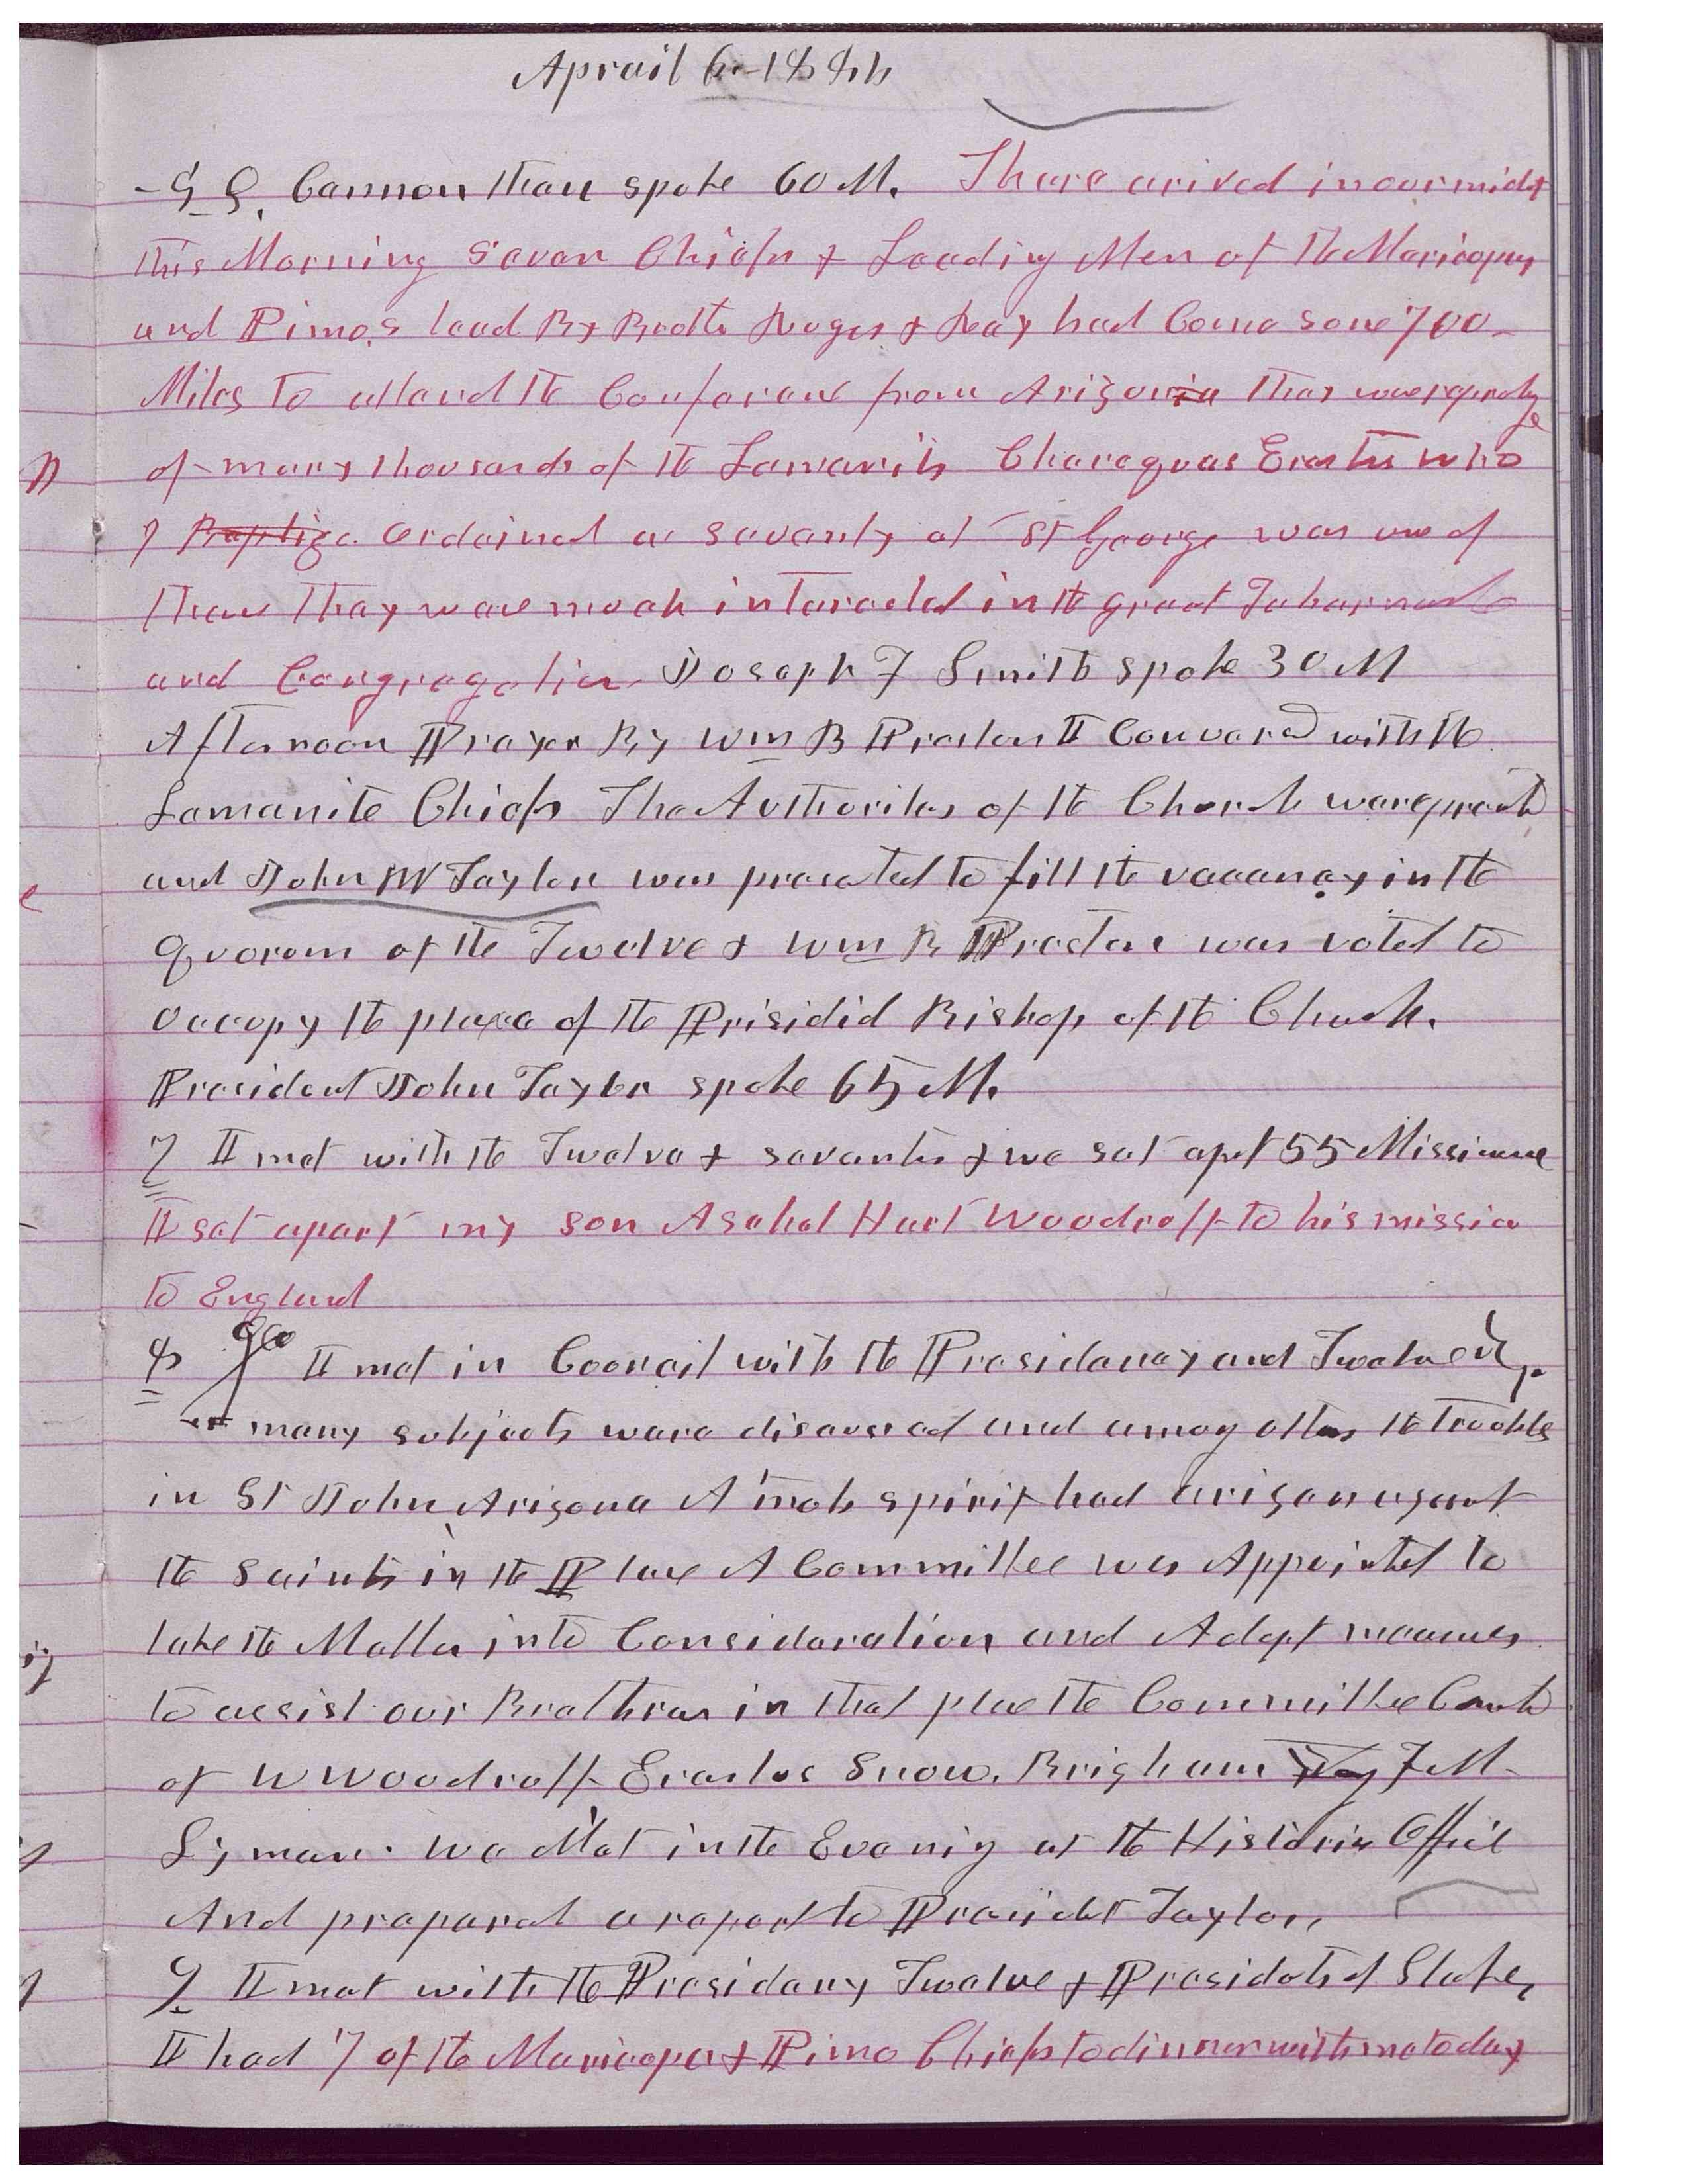 Aprail 6 - 1884
- G Q. Cannon than spoke 60 M. There arived in our midst
this Morning Seven Chiefs & Leading Men of the Maricopas
and Pimas lead By Brothe Rogers & had Come some 700
Miles to attend the Conferenc from Arizonia Thay were representing
of many thousands of the Lamanits Cheroquas Erastus who
I Baptize ordained a seventy at St George was one of
them Thay were much interested in the great Tabernacle
and Congregation Joseph F Smith spoke 30 M
Afternoon Prayer By Wm B Preston I Conversed with the
Lamanite Chiefs The Authorites of the Church were presented
and John W Taylor was presented to fill the vacancy in the
quorum of the Twelve & Wm B Preston was voted to
occupy the place of the Prisidid Bishop of the Church.
President John Taylor spoke 65 M.
7 I met with the Twelve & seventies & we set apart 55 Missionaries
I set apart my son Asahel Hart Woodruff to his mission
to England
8 I met in Council with the Presidency and Twelve
many subjects were discussed and among others the troubles
in St John Arizona A mob spirit had arisen against
the Saints in the Place A Committee was Appointed to
take the Matter into Consideration and Adopt measures
to assist our Brethren in that place the Committee
of W Woodruff Erastus Snow. Brigham Young F M
Lyman. We Met in the Evening at the Historian Office
And prepared a report to President Taylor,
9 I met with the Presidency Twelve & Presidets of Stake,
I had 7 of the Maricopa & Pimo Chiefs to dinner with me to day